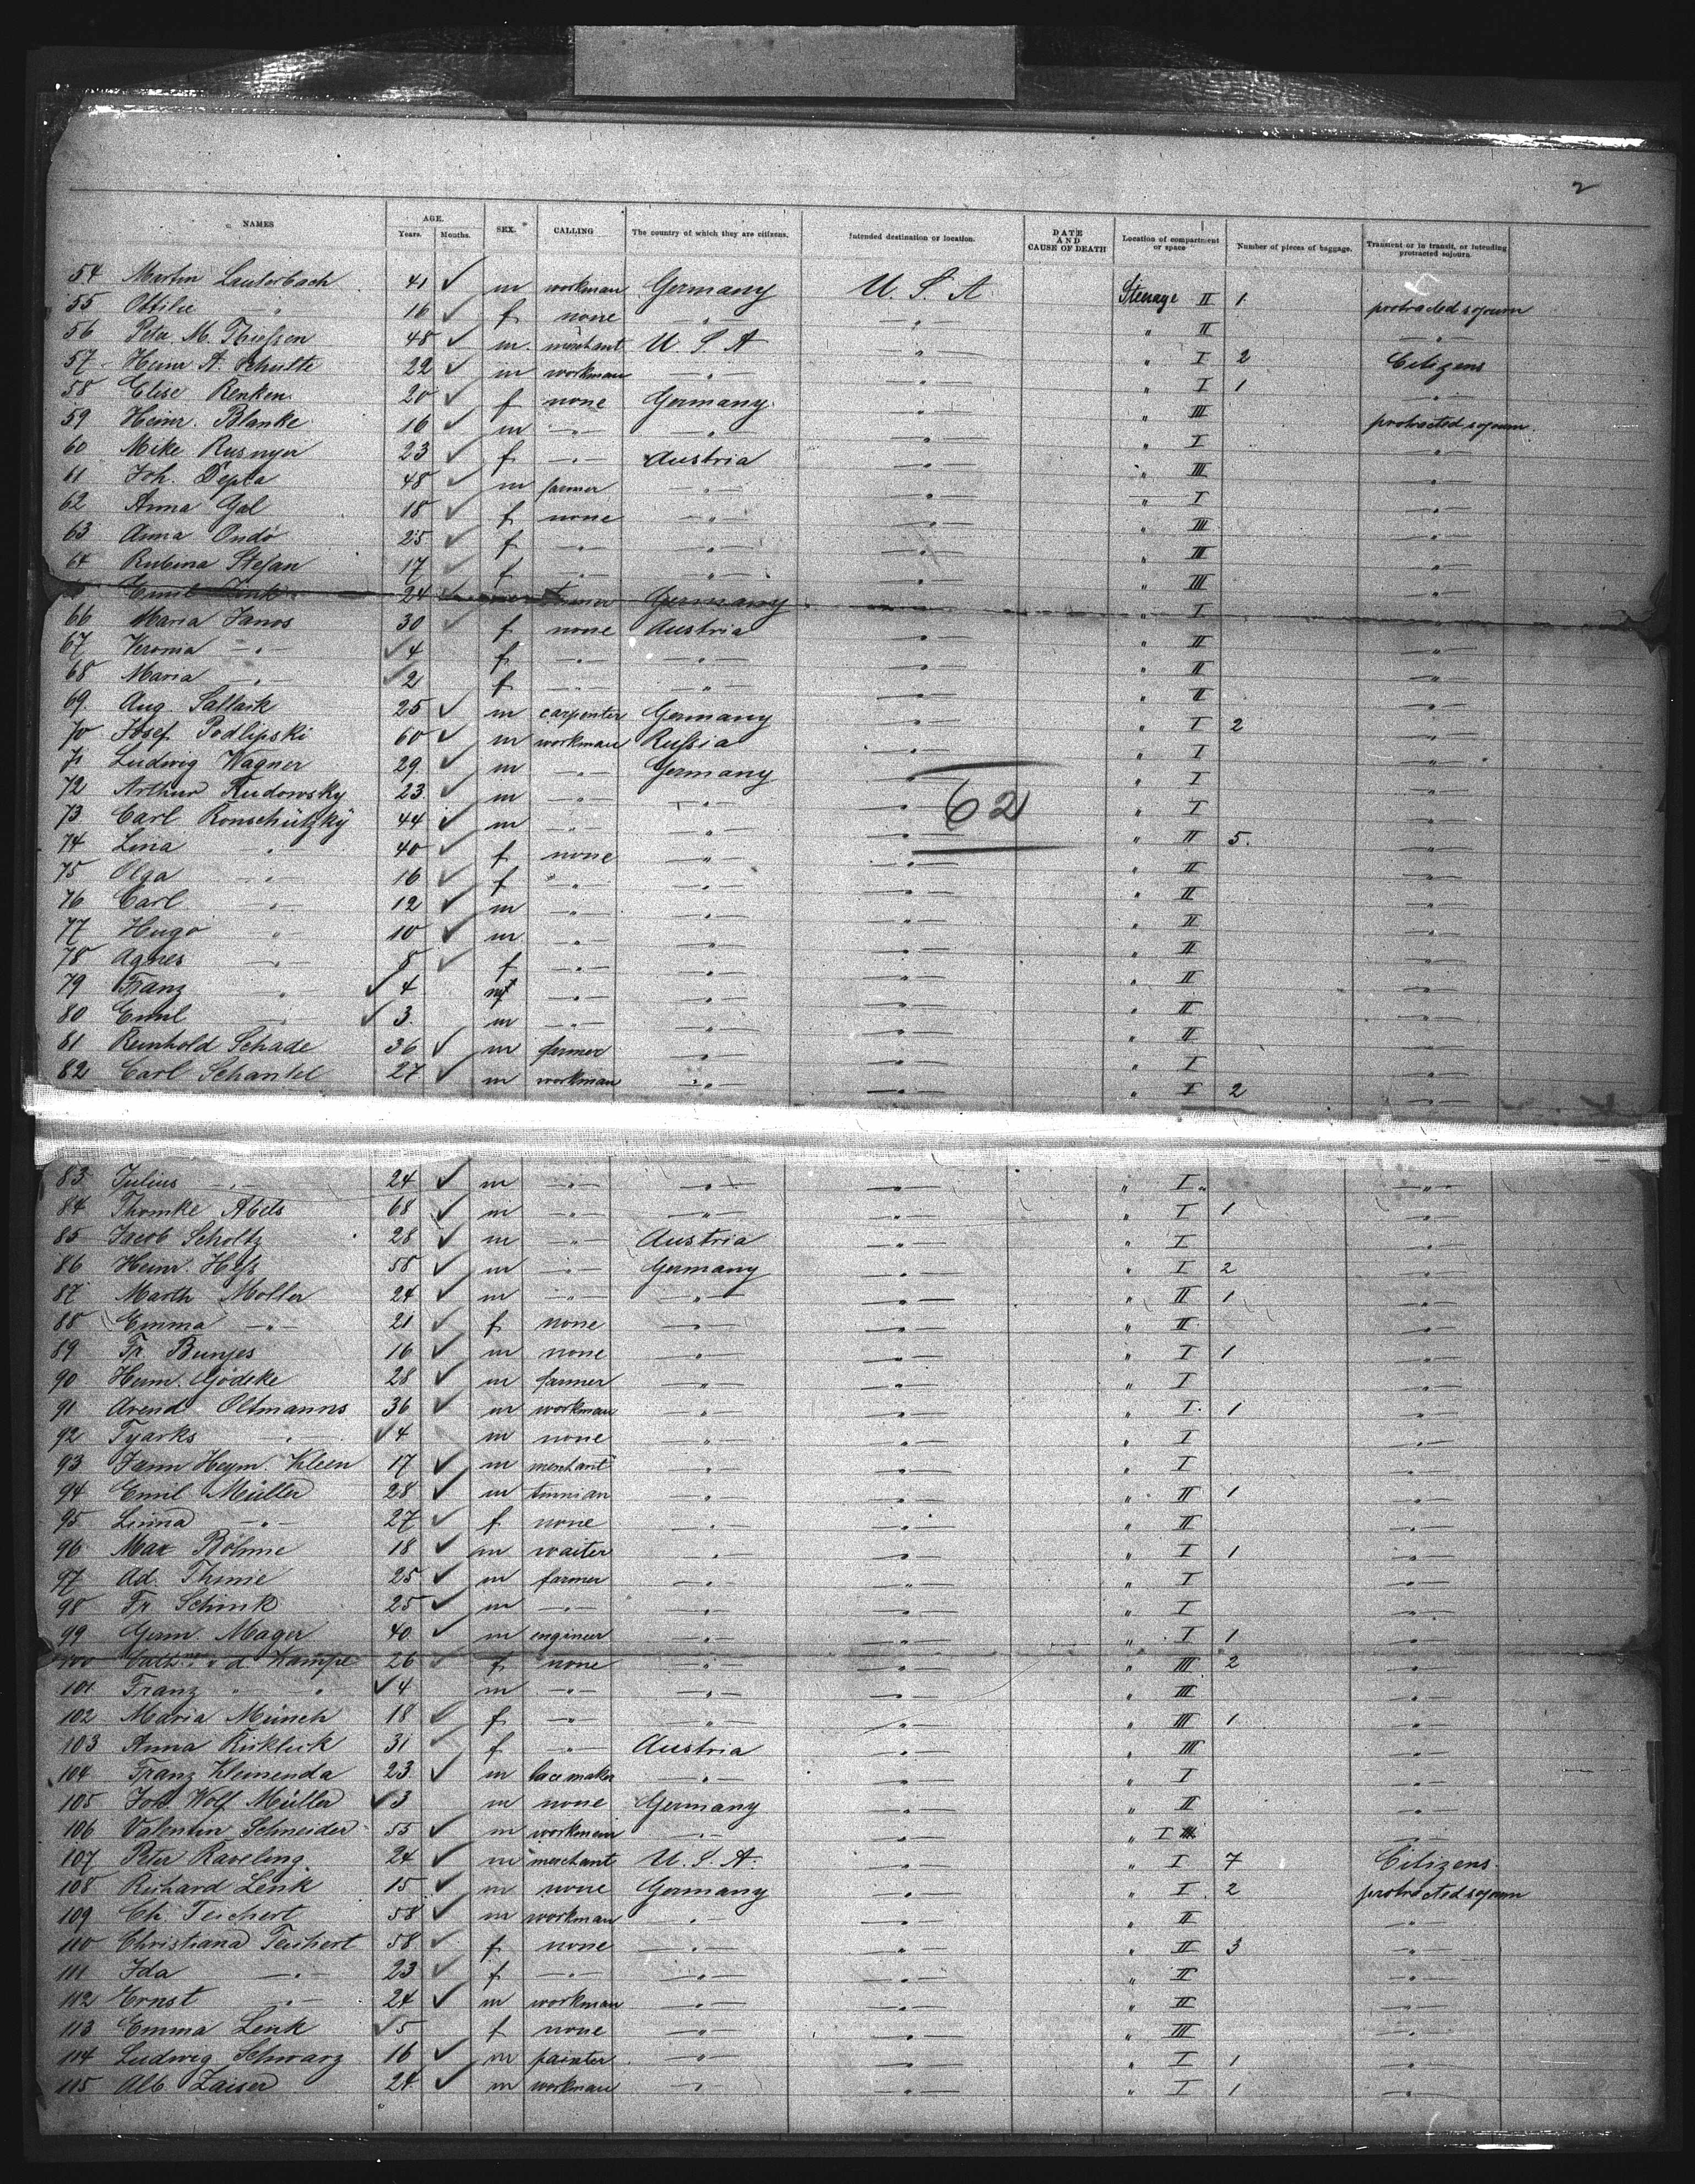 2
NAMES AGE. Years. Months. SEX. CALLING The country of which they are citizens. Intended destination or location. DATE AND CAUSE OF DEATH Location of compartment or space Number of pieces of baggage. Transient or in transit, or intending protracted sojourn
54 Martin Lauterbach 41 ✓ m workman Germany U. S. A Steerage II 1 protracted sojourn
55 Ottilie —"— 16 ✓ f none —"— —"— " II —"—
56 Peter M. Thiessen 48 ✓ m. merchant U. S. A —"— " I 2 Citizens
57 Heinr A. Schulte 22 ✓ m workman —"— —"— " I 1 —"—
58 Elise Renken 20 ✓ f none Germany —"— " III protracted sojourn.
59 Heinr. Blanke 16 ✓ m —"— —"— —"— " I —"—
60 Mike Rusnyer 23 ✓ f —"— Austria —"— " III —"—
61 Joh. Depta 48 ✓ m farmer —"— —"— " I —"—
62 Anna Gal 18 ✓ f none —"— —"— " III —"—
63 Anna Ondo 25 ✓ f —"— —"— —"— " III —"—
64 Rubina Stefan 17 ✓ f —"— —"— —"— " III —"—
Emil 24 Germany " I
66 Maria Janos 30 ✓ f none Austria —"— " II —"—
67 Veronia —"— ✓ 4 f —"— —"— —"— " II —"—
68 Maria —"— ✓ 2 f —"— —"— —"— " II —"—
69. Aug. Sallask 25 ✓ m carpenter Germany —"— " I 2 —"—
70 Josef Podlipski 60 ✓ m workman Russia —"— " I —"—
71 Ludwig Wagner 29. ✓ m —"— Germany —"— " I —"—
72 Arthur Rudowsky 23 ✓ m —"— —"— —"— " I —"—
62
73 Carl Ronschützky 44 ✓ m —"— —"— —"— " II 5. —"—
74 Lina —"— 40 ✓ f none —"— —"— " II —"—
75 Olga —"— 16 ✓ f —"— —"— —"— " II —"—
76 Carl —"— 12 ✓ m —"— —"— —"— " II —"—
77 Hugo —"— 10 ✓ m —"— —"— —"— " II —"—
78 Agnes —"— 8 ✓ f —"— —"— —"— " II —"—
79 Franz —"— ✓ 4 m —"— —"— —"— " II —"—
80 Emil —"— ✓ 3. m —"— —"— —"— " II —"—
81 Reinhold Schade 36 ✓ m farmer —"— —"— " I —"—
82 Carl Schantel 27 ✓ m workman —"— —"— " I 2 —"—
83 Julius —"— 24 ✓ m —"— —"— —"— " I —"—
84 Thomke Abels 68 ✓ m —"— —"— —"— " I 1 —"—
85 Jacob Scholtz 28 ✓ m —"— Austria —"— " I —"—
86 Heinr. 55 ✓ m —"— Germany —"— " I 2 —"—
87 Marth Moller 24 ✓ m —"— —"— —"— " II 1 —"—
88 Emma —"— 21 ✓ f none —"— —"— " II —"—
89 Fr. Bunjes 16 ✓ m none —"— —"— " I 1 —"—
90 Herm. Gödeke 28 ✓ m farmer —"— —"— " I —"—
91 Arend Oltmanns 36 ✓ m workman —"— —"— " I. 1 —"—
92 Tyarks —"— ✓ 4 m none —"— —"— " I —"—
93 Jann Heym. Kleen 17 ✓ m merchant —"— —"— " I —"—
94 Emil Müller 28 ✓ m tinman —"— —"— " II 1 —"—
95 Linna —"— 27 ✓ f none —"— —"— " II —"—
96 Max Böhme 18 ✓ m waiter —"— —"— " I 1 —"—
97 Ad. Thime 25 ✓ m farmer —"— —"— " I —"—
98 Fr. Schink 25 ✓ m —"— —"— —"— " I —"—
99 Germ. Mager 40. ✓ m engineer —"— —"— " I 1 —"—
100 v. d. Kampe 26 ✓ f none —"— —"— " III 2 —"—
101 Franz " " ✓ 4 m —"— —"— —"— " III —"—
102 Maria Münch 18 ✓ f —"— —"— —"— " III 1 —"—
103 Anna 31 ✓ f —"— Austria —"— " III —"—
104 Franz Klemenda 23 ✓ m lacemaker —"— —"— " I —"—
105 Joh. Wolf Müller ✓ 3 m none Germany —"— " II —"—
106 Valentin Schneider 55 ✓ m workman —"— —"— " I —"—
107 Peter Raveling 24 ✓ m merchant U. S. A. —"— " I 7 Citizens
108 Richard Lenk 15 ✓ m none Germany —"— " I 2 protracted sojourn
109 Ch. Teichert 58 ✓ m workman —"— —"— " II —"—
110 Christiana Teichert 58 ✓ f none —"— —"— " II 3 —"—
111 Ida —"— 23 ✓ f —"— —"— —"— " II —"—
112 Ernst —"— 24 ✓ m workman —"— —"— " II —"—
113 Emma Lenk ✓ 5 f none —"— —"— " III —"—
114 Ludwig Schwarz 16 ✓ m painter —"— —"— " I 1 —"—
115 Alb. Zaiser 24 ✓ m workman —"— —"— " I 1 —"—